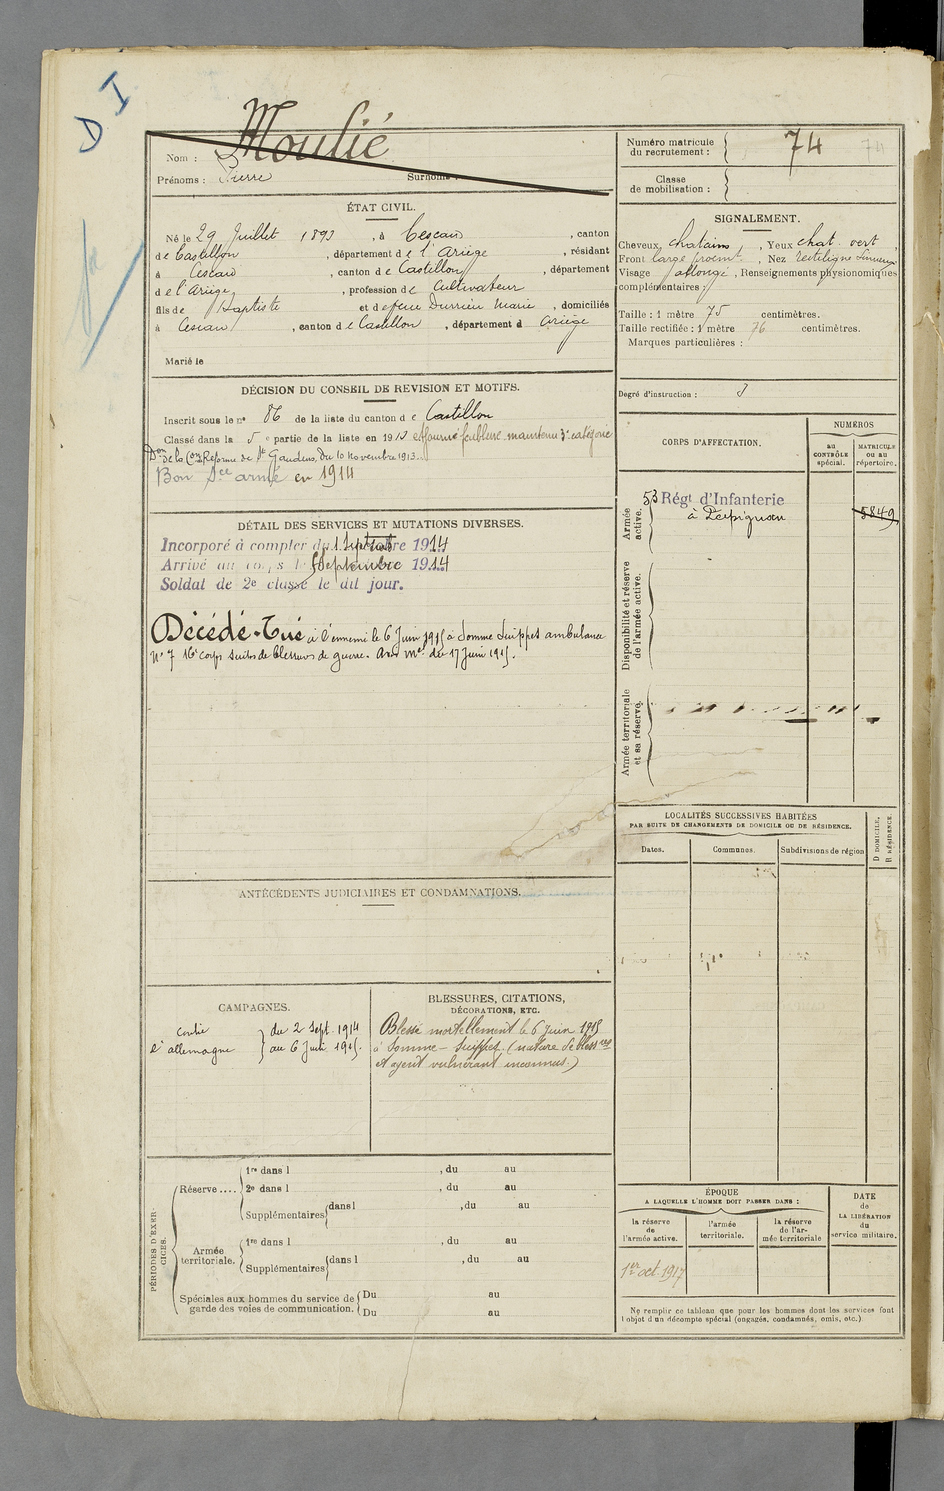 D I
Moulié
Nom :
Prénoms : Pierre Surnoms :
Numéro matricule du recrutement : 74 74
Classe de mobilisation :
ÉTAT CIVIL.
Né le 29 Juillet 1893, à Cescau, canton
de Castillon, département de l'Ariège, résidant
à Cescau, canton de Castillon, département
de l'Ariège, profession de Cultivateur
fils de Baptiste et de feue Durrieu Marie, domiciliés
à Cescau, canton de Castillon, département d Ariège
Marié le
SIGNALEMENT.
Cheveux chatains, Yeux chat. vert
Front large proemt., Nez rectiligne
Visage allongé, Renseignements physionomiques
complémentaires :
Taille : 1 mètre 75 centimètres.
Taille rectifiée : 1 mètre 76 centimètres.
Marques particulières :
Degré d'instruction : 3
DÉCISION DU CONSEIL DE REVISION ET MOTIFS.
Inscrit sous le no 86 de la liste du canton de Castillon
Classé dans la 5e partie de la liste en 1913 ajourné faiblesse maintenu 3e catégorie
Don de la Con Reforme de St Gaudens, du 10 novembre 1913.
Bon Sce armé en 1914
DÉTAIL DES SERVICES ET MUTATIONS DIVERSES.
Incorporé à compter du 1 Septembre 1914
Arrivé au corps le Septembre 1914
Soldat de 2e classe le dit jour.
Décédé. Tué à l'ennemi le 6 Juin 1915 à Somme Suippes ambulance
No 7 16e corps suites de blessures de guerre. Avis Mel du 17 Juin 1915.
CORPS D'AFFECTATION.
NUMÉROS
au CONTRÔLE spécial.
MATRICULE ou au répertoire.
Armée active.
53 Régt d'Infanterie
à Perpignan
5849
Disponibilité et réserve de l'armée active.
Armée territoriale et sa réserve.
LOCALITÉS SUCCESSIVES HABITÉES
PAR SUITE DE CHANGEMENTS DE DOMICILE OU DE RÉSIDENCE.
Dates. Communes. Subdivisions de région
D DOMICILE.
R RÉSIDENCE.
ANTÉCÉDENTS JUDICIAIRES ET CONDAMNATIONS.
CAMPAGNES.
contre du 2 Sept. 1914
l'allemagne au 6 Juin 1915.
BLESSURES, CITATIONS,
DÉCORATIONS, ETC.
Blessé mortellement le 6 juin 1915
à Somme-Suippes. (nature de blessres
et agent vulnérant inconnus.)
PÉRIODES D'EXERCICES.
Réserve....
1re dans l , du au
2e dans l , du au
Supplémentaires dans l , du au
Armée territoriale.
1re dans l , du au
Supplémentaires dans l , du au
Spéciales aux hommes du service de garde des voies de communication.
Du au
Du au
ÉPOQUE
A LAQUELLE L'HOMME DOIT PASSER DANS :
la réserve de l'armée active.
l'armée territoriale.
la réserve de l'armée territoriale
DATE de LA LIBÉRATION du service militaire.
1er oct. 1917
Ne remplir ce tableau que pour les hommes dont les services font
l'objet d'un décompte spécial (engagés, condamnés, omis, etc.)